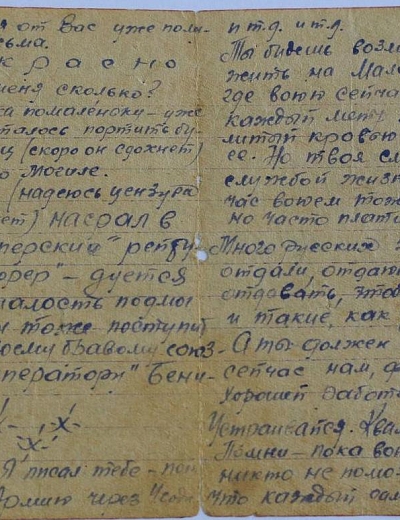 от Вас уже полу-
сьма.
красно
меня сколько?
помаленьку – уже
талось портить бу-
(скоро он сдохнет)
о Могиле.
(надеюсь цензура
ет) насрал в
перский" репу
рер" – дуется
малость подмы
тоже поступи
своему бравому союз-
ператору" Бени-
Я писал тебе – пом
Армию через
и т.д. и т.д.
Ты будешь возм
жить на Мало
где вою сейча
каждый метр
литый кровью
се. Но твоя сл
службой жизн
час воюем тож
но часто плати
Много русских
отдали, отдают
отдавать, чтоб
и такие, как
А ты должен
сейчас нам, ф
хорошей работ
Устраивайся.
Помни – пока во
никто не помо
что каждый сам